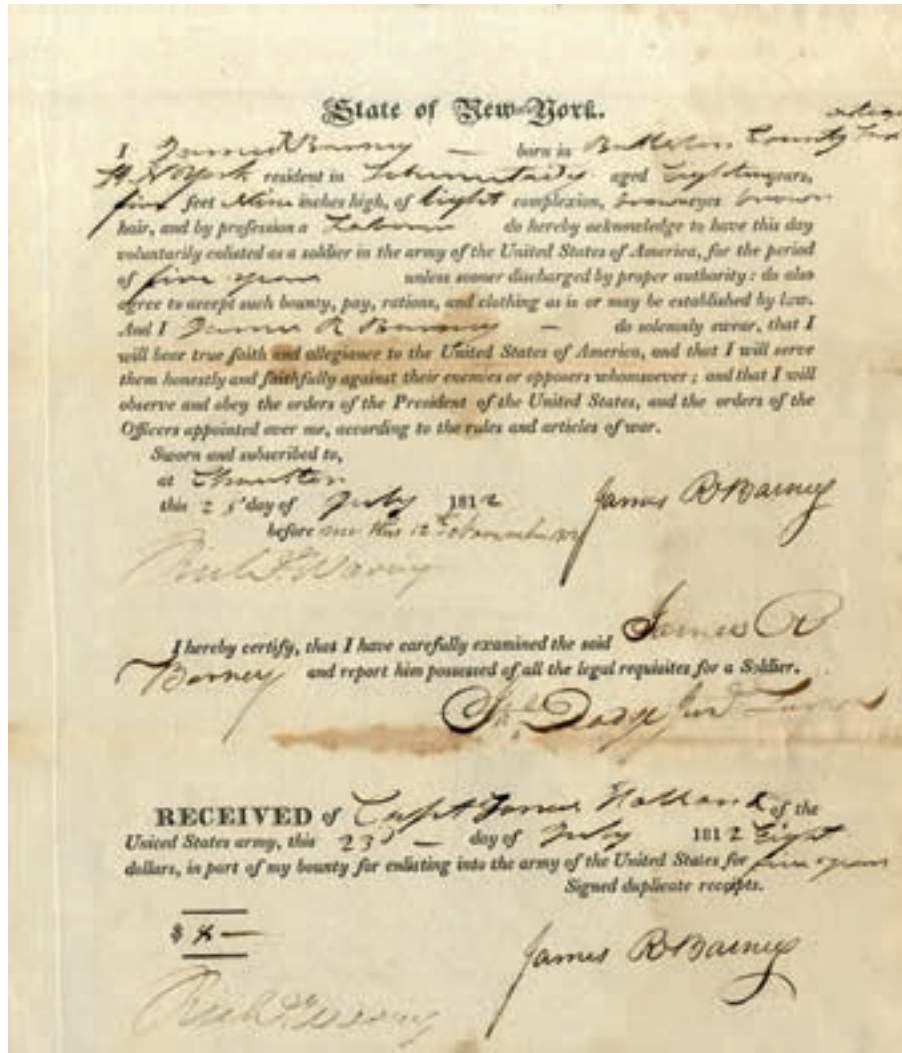 State of New-York.
I James R Barney — born in County
N York resident in aged years,
five feet Nine inches high, of light complexion, eyes brown
hair, and by profession a do hereby acknowledge to have this day
voluntarily enlisted as a soldier in the army of the United States of America, for the period
of five years unless sooner discharged by proper authority: do also
agree to accept such bounty, pay, rations, and clothing as is or may be established by law.
And I James R Barney — do solemnly swear, that I
will bear true faith and allegiance to the United States of America, and that I will serve
them honestly and faithfully against their enemies or opposers whomsoever; and that I will
observe and obey the orders of the President of the United States, and the orders of the
Officers appointed over me, according to the rules and articles of war.
Sworn and subscribed to,
at
this day of July 1812
James R Barney
before me this 12th
I hereby certify, that I have carefully examined the said James R
Barney and report him possessed of all the legal requisites for a Soldier.
Dodge
RECEIVED of Capt of the
United States army, this 23d — day of July 1812 Eight
dollars, in part of my bounty for enlisting into the army of the United States for five years
Signed duplicate receipts.
$ 8 —
James R Barney